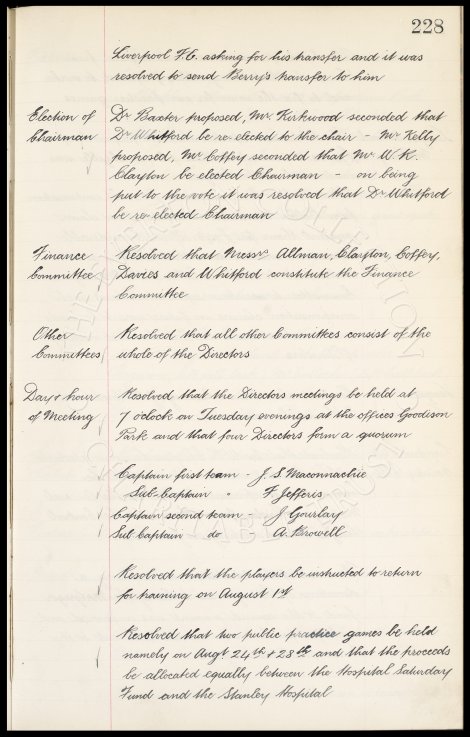 228
Liverpool F.C. asking for his transfer and it was
resolved to send Berry's transfer to him
Election of
Chairman
Dr Baxter proposed, Mr. Kirkwood seconded that
Dr Whitford be re-elected to the chair - Mr Kelly
proposed, Mr Coffey seconded that Mr W. R.
Clayton be elected Chairman - on being
put to the vote it was resolved that Dr Whitford
be re-elected Chairman
Finance
Committee
Resolved that Messrs Allman, Clayton, Coffey,
Davies and Whitford constitute the Finance
Committee
Other
Committees
Resolved that all other Committees consist of the
whole of the Directors
Day & hour
of Meeting
Resolved that the Directors meetings be held at
7 o'clock on Tuesday evenings at the offices Goodison
Park and that four Directors form a quorum
Captain first team - J. S. Maconnachie
Sub-Captain " F Jefferis
Captain second team - J Gourlay
Sub Captain do A. Browell
Resolved that the players be instructed to return
for training on August 1st
Resolved that two public practice games be held
namely on Augt 24th & 28th and that the proceeds
be allocated equally between the Hospital Saturday
Fund and the Stanley Hospital